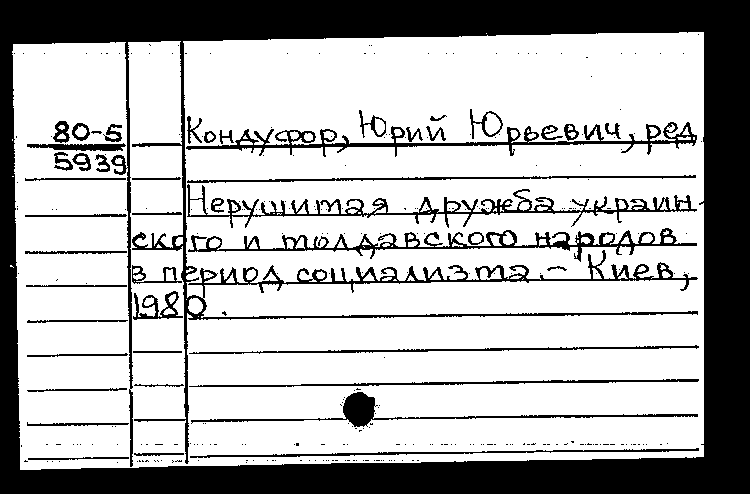 80-5
5939
Кондуфор, Юрий Юрьевич, ред.
Нерушимая дружба украин-
ского и молдавского народов
в период социализма. – Киев,
1980.